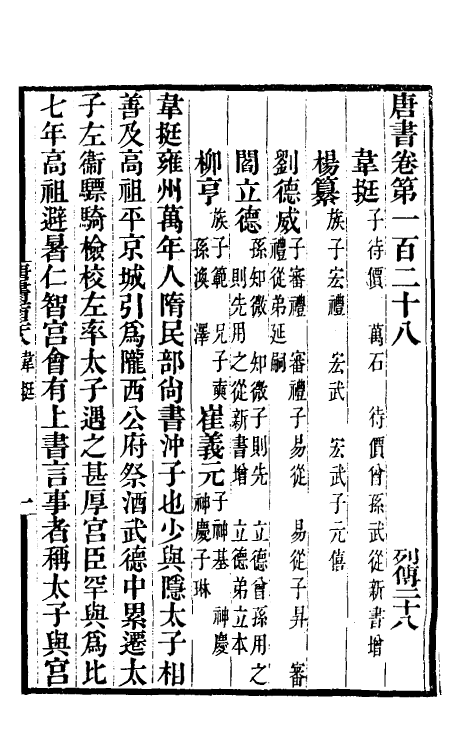 唐書卷第一百二十八 列傳二十八
韋挺 子待價 萬石 待價曾孫武從新書增
楊纂 族子宏禮 宏武 宏武子元僖
劉德威 子審禮 審禮子易從 易從子昇 審
禮從弟延嗣
閻立德 孫知微 知微子則先 立德曾孫用之
則先用之從新書增 立德弟立本
柳亨 族子範 兄子奭
孫渙 澤
崔義元 子神基 神慶
神慶子琳
韋挺雍州萬年人隋民部尙書沖子也少與隱太子相
善及高祖平京城引爲隴西公府祭酒武德中累遷太
子左衞驃騎檢校左率太子遇之甚厚宮臣罕與爲比
七年高祖避暑仁智宮會有上書言事者稱太子與宮
韋挺
一